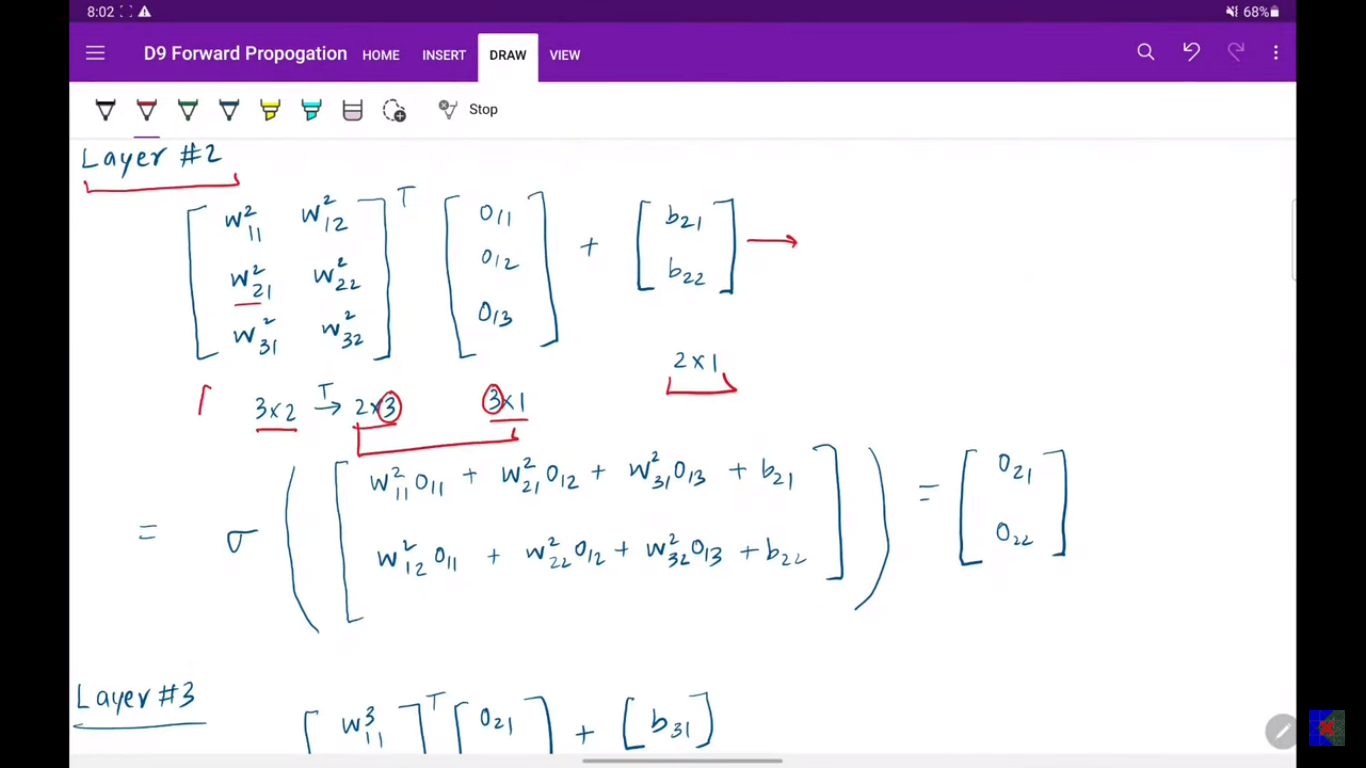 8:02 68%
D9 Forward Propogation HOME INSERT DRAW VIEW
Stop
Layer #2
[ w²₁₁ w²₁₂ ]ᵀ [ o₁₁ ] + [ b₂₁ ] →
[ w²₂₁ w²₂₂ ] [ o₁₂ ] [ b₂₂ ]
[ w²₃₁ w²₃₂ ] [ o₁₃ ]
2×1
3×2 T→ 2×3 3×1
= σ ( [ w²₁₁o₁₁ + w²₂₁o₁₂ + w²₃₁o₁₃ + b₂₁ ] ) = [ o₂₁ ]
[ w²₁₂o₁₁ + w²₂₂o₁₂ + w²₃₂o₁₃ + b₂₂ ] [ o₂₂ ]
Layer #3
[ w³₁₁ ]ᵀ [ o₂₁ ] + [ b₃₁ ]